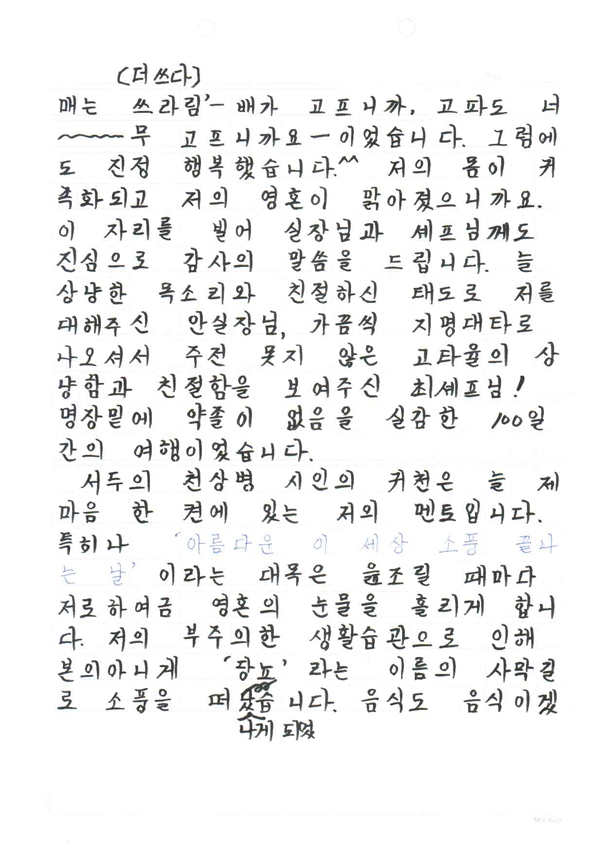 (더 쓰다)
매는 쓰라림' - 배가 고프니까, 고파도 너
~~~무 고프니까요 - 이었습니다. 그럼에
도 진정 행복했습니다.^^ 저의 몸이 커
족화되고 저의 영혼이 맑아졌으니까요.
이 자리를 빌어 실장님과 셰프님께도
진심으로 감사의 말씀을 드립니다. 늘
상냥한 목소리와 친절하신 태도로 저를
대해주신 안실장님, 가끔씩 지명대타로
나오셔서 주전 못지 않은 고타율의 상
냥함과 친절함을 보여주신 최셰프님!
명장밑에 약졸이 없음을 실감한 100일
간의 여행이었습니다.
서두의 천상병 시인의 커천은 늘 제
마음 한 켠에 있는 저의 멘토입니다.
특히나 '아름다운 이 세상 소풍 끝나
는 날' 이라는 대목은 읊조릴 때마다
저로하여금 영혼의 눈물을 흘리게 합니
다. 저의 부주의한 생활습관으로 인해
본의아니게 '당뇨' 라는 이름의 사막길
로 소풍을 떠났습니다. 음식도 음식이겠
나게 되었